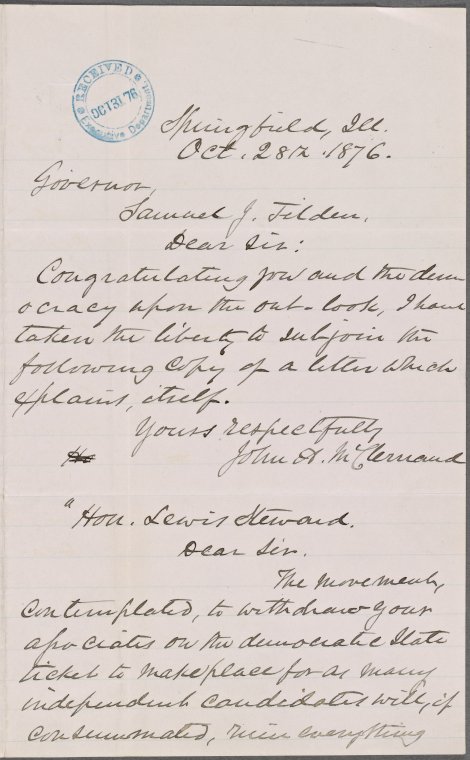 RECEIVED
OCT 31 76
Executive Department
Springfield, Ill.
Oct. 28th. 1876.
Governor,
Samuel J. Tilden.
Dear Sir:
Congratulating you and the dem
ocracy upon the out-look, I have
taken the liberty to subjoin the
following copy of a letter which
explains, itself.
Yours respectfully
John A. McClernand
"Hon. Lewis Steward.
Dear Sir.
The movement,
contemplated, to withdraw your
associates on the democratic State
ticket to make place for as many
independent candidates will, if
consummated, ruin everything